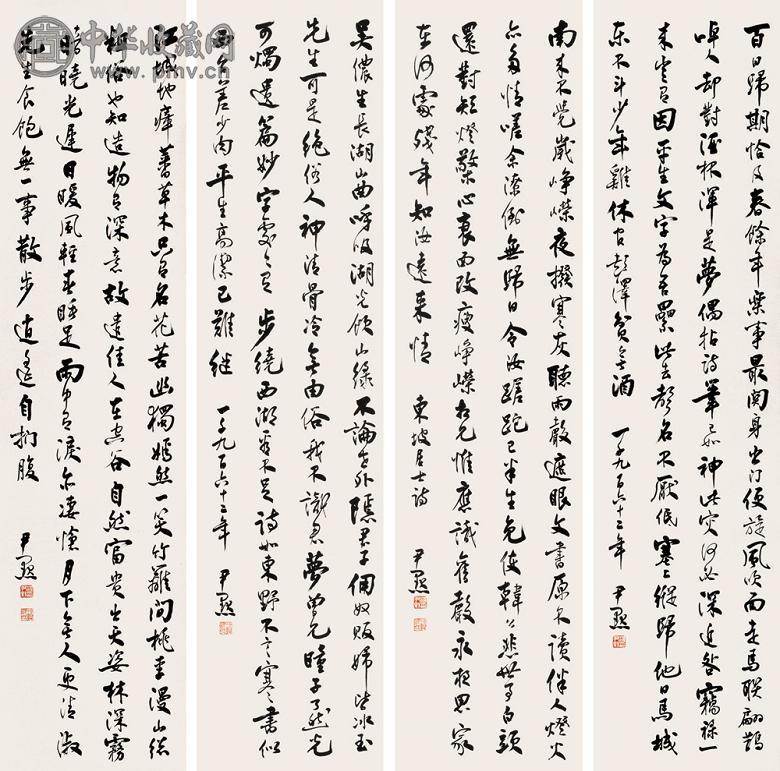 中华收藏网
www.pmv.cn
百日歸期恰及春餘年樂事最關身出門便旋風吹面走馬聯翩鵲
啅人却對酒杯渾是夢偶拈詩筆已如神此灾何必深追咎竊祿
來豈有因平生文字為吾累此去聲名不厭低塞上縱歸他日馬城
東不斗少年雞休官彭澤貧無酒 一千九百六十三年 尹默
南來不覺歲崢嶸夜撥寒灰聽雨聲遮眼文書原不讀伴人燈火
亦多情嗟余潦倒無歸日令汝蹉跎已半生免使韓公悲世事白頭
還對短燈檠心衰面改瘦崢嶸相見惟應識舊聲永夜思家
在何處殘年知汝遠來情 東坡居士詩 尹默
吳儂生長湖山曲呼吸湖光飲山綠不論世外隱君子傭奴販婦皆冰玉
先生可是絕俗人神清骨冷無由俗我不識君夢曾見瞳子了然光
可燭遺篇妙字處處有步繞西湖看不足詩如東野不言寒書似
西臺差少肉平生高潔已難繼 一千九百六十三年 尹默
江城地瘴蕃草木只有名花苦幽獨嫣然一笑竹籬間桃李漫山總
粗俗也知造物有深意故遣佳人在空谷自然富貴出天姿林深霧
暗曉光遲日暖風輕春睡足雨中有淚亦悽愴月下無人更清淑
先生食飽無一事散步逍遙自捫腹 尹默